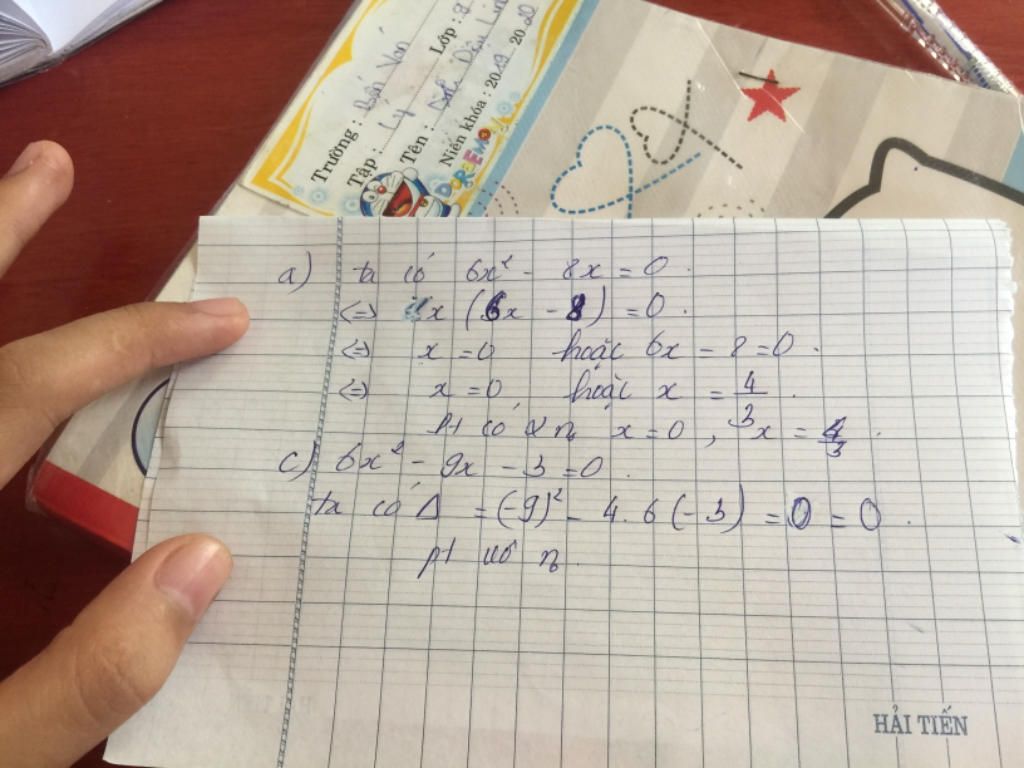 Trường : 
Lớp : 9
Tập : Lý
Tên :
Niên khóa : 2019 2020
DORAEMON
a) ta có 6x² - 8x = 0.
<=> x (6x - 8) = 0.
<=> x = 0 hoặc 6x - 8 = 0.
<=> x = 0 hoặc x = 4/3.
Pt có 2 n₀ x = 0, x = 4/3.
c) 6x² - 9x - 3 = 0.
ta có Δ = (-9)² - 4.6(-3) = 0 = 0.
pt n₀.
HẢI TIẾN